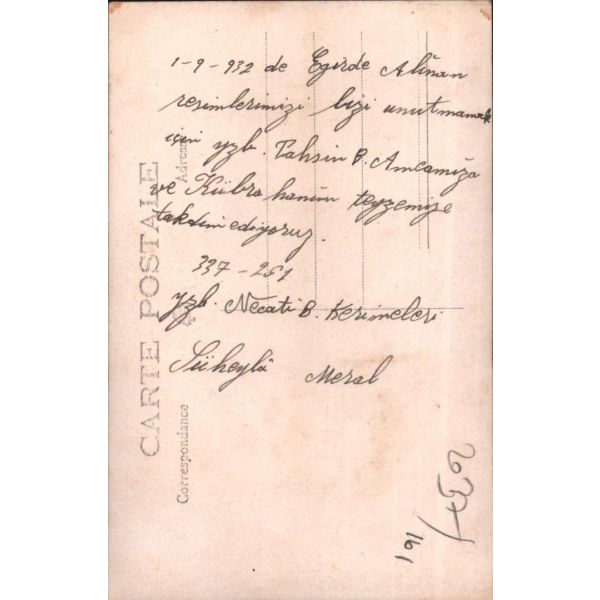 1-9-932 de Egirde Alınan
resimlerimizi bizi unutmamak
için yzb. Tahsin B. Amcamıza
ve Kübra hanım teyzemize
takdim ediyoruz.
337-251
yzb. Necati B. Kerimeleri
Süheylâ Meral
CARTE POSTALE
Adresse
Correspondance
191